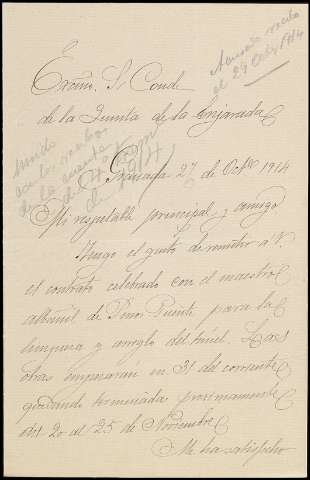 Excmo. Sr Conde
de la Quinta de la Enjarada
Acusado recibo
el 29 Octbre 1914
Granada 27 de Octbre 1914
Mi respetable principal y amigo
Tengo el gusto de remitir á V.
el contrato celebrado con el maestro
albañil de Pinos Puente para la
limpieza y arreglo del túnel. Las
obras empezaran en 31 del corriente
quedando terminada proximamente
del 20 al 25 de Noviembre
Me ha satisfecho